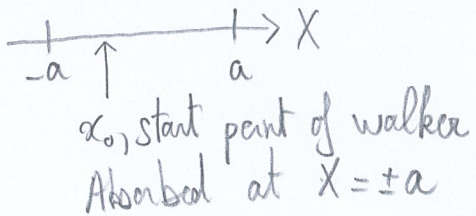 X
-a a
x₀, start point of walker
Absorbed at X = ±a